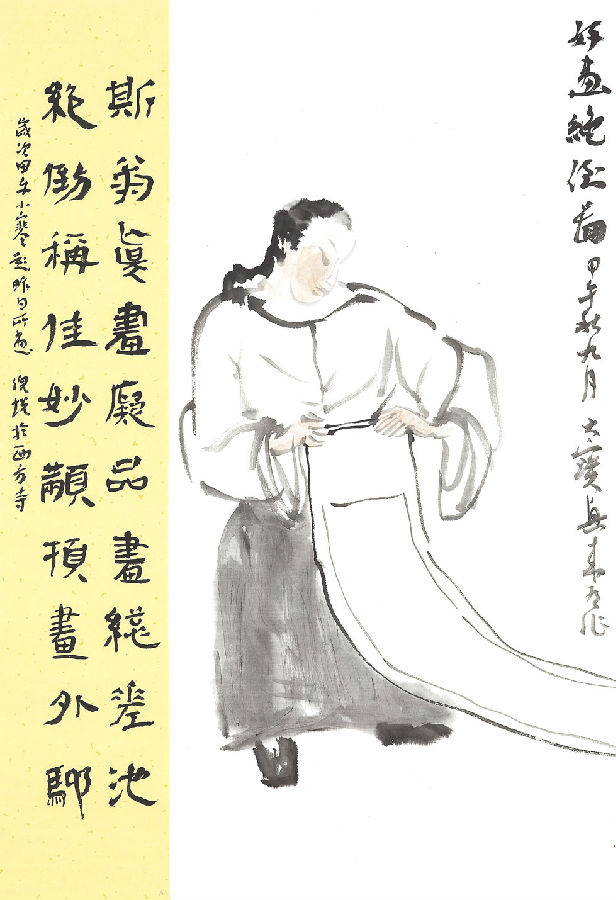 好畫絕倒圖 甲午秋九月 大寶
斯翁真畫癡品畫縱差池
絕倒稱佳妙顢頇畫外馳
歲次甲午小寒題昨日所畫 倪 於西方寺